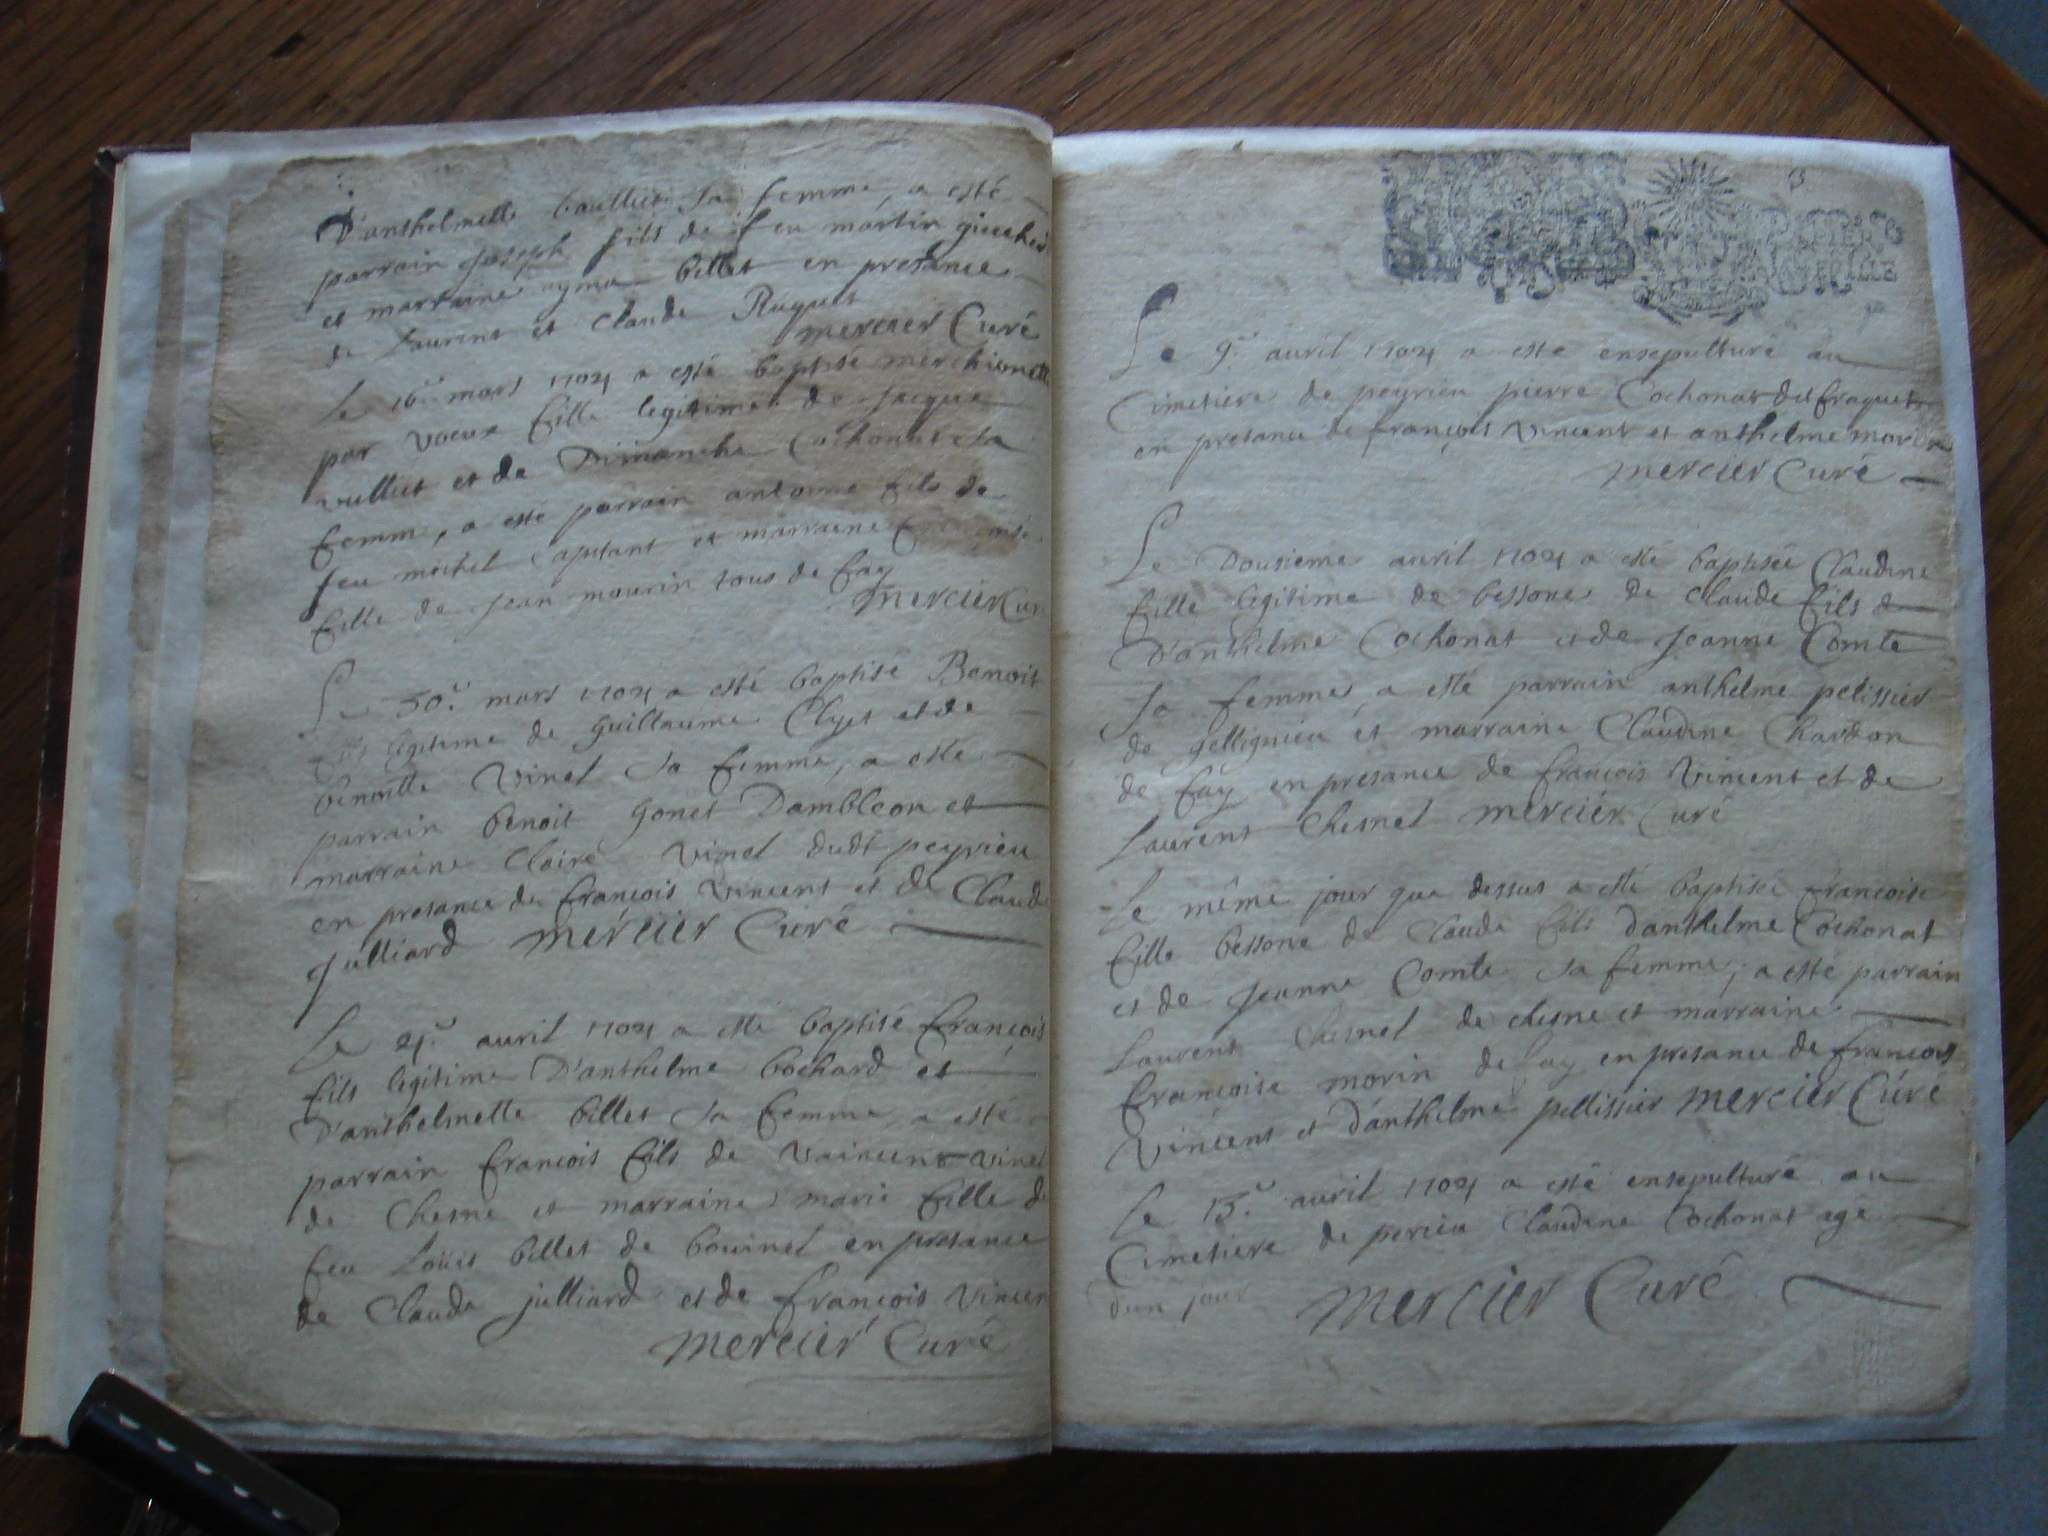 D'anthelmette baillet sa femme, a esté
parrain Joseph fils de feu martin
et marraine ayma billet en presance
de Laurent et Claude Ruguet
mercier Curé
Le 16e mars 1704 a esté baptisé
par voeux fille legitime de Jacque
vullict et de Dimanche Cochonat sa
femme, a esté parrain antoine fils de
feu michel et marraine
fille de Jean mourin tous de fay
mercier Cur
Le 30e mars 1704 a esté baptisé Benoit
fils legitime de Guillaume Clyet et de
benoitte Vinel sa femme, a esté
parrain benoit Gonet Dambleon et
marraine Claire Vinel dudt peyrieu
en presance de francois Vincent et de Claude
Julliard mercier Curé
Le 4e auril 1704 a esté baptisé françois
fils legitime D'anthelme bochard et
D'anthelmette billet sa femme, a esté
parrain francois fils de Vaincent Vinel
de Chesne et marraine marie fille de
feu Loüis billet de bovinel en presance
de Claude julliard et de françois Vincen
mercier Curé
3
Le 9e auril 1704 a esté ensepulturé au
Cimetiere de peyrieu pierre Cochonat dit fraquet
en presance de françois Vincent et anthelme morin
mercier Curé
Le Dousieme auril 1704 a esté baptisée Claudine
fille legitime de bessone de Claude fils
D'anthelme Cochonat et de Jeanne Comte
sa femme, a esté parrain anthelme pelissier
de gellignieu et marraine Claudine Chardon
de fay en presance de francois Vincent et de
Laurent Chesnel mercier Curé
Le même jour que dessus a esté baptisé francoise
fille bessone de Claude fils Danthelme Cochonat
et de Jeanne Comte sa femme, a esté parrain
Laurent Chesnel de chesne et marraine
francoise morin de fay en presance de francois
Vincent et D'anthelme pellissier mercier Curé
Le 13e auril 1704 a esté ensepulturé au
Cimetiere de perieu Claudine Cochonat agé
dun jour mercier Curé